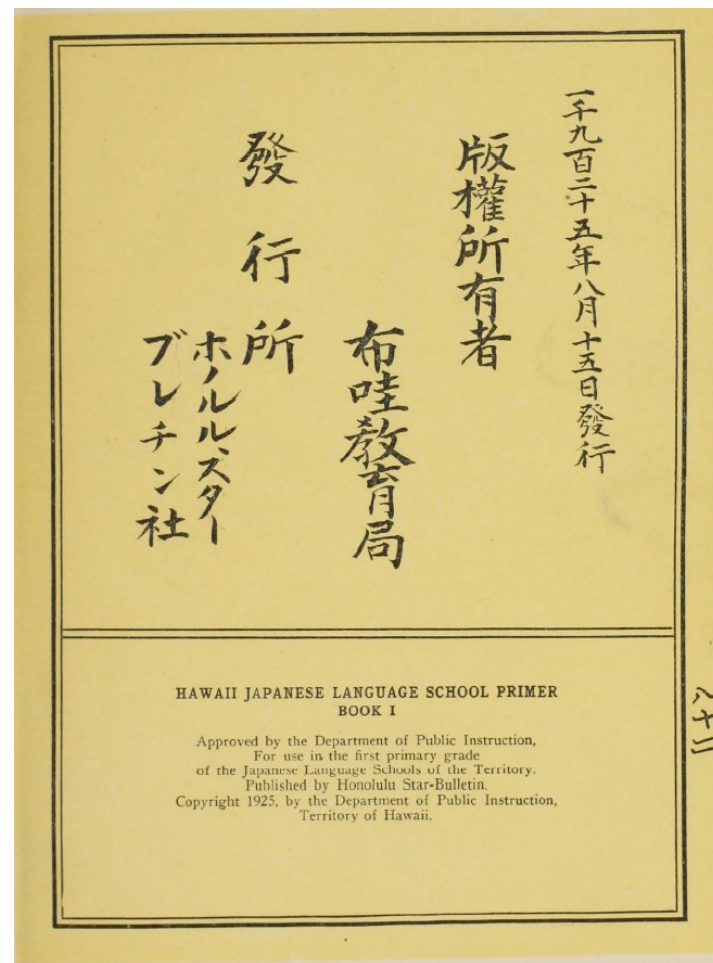 一千九百二十五年八月十五日發行
版權所有者
布哇教育局
發行所
ホノルル、スター
ブレチン社
HAWAII JAPANESE LANGUAGE SCHOOL PRIMER
BOOK I
Approved by the Department of Public Instruction,
For use in the first primary grade
of the Japanese Language Schools of the Territory.
Published by Honolulu Star-Bulletin.
Copyright 1925, by the Department of Public Instruction,
Territory of Hawaii.